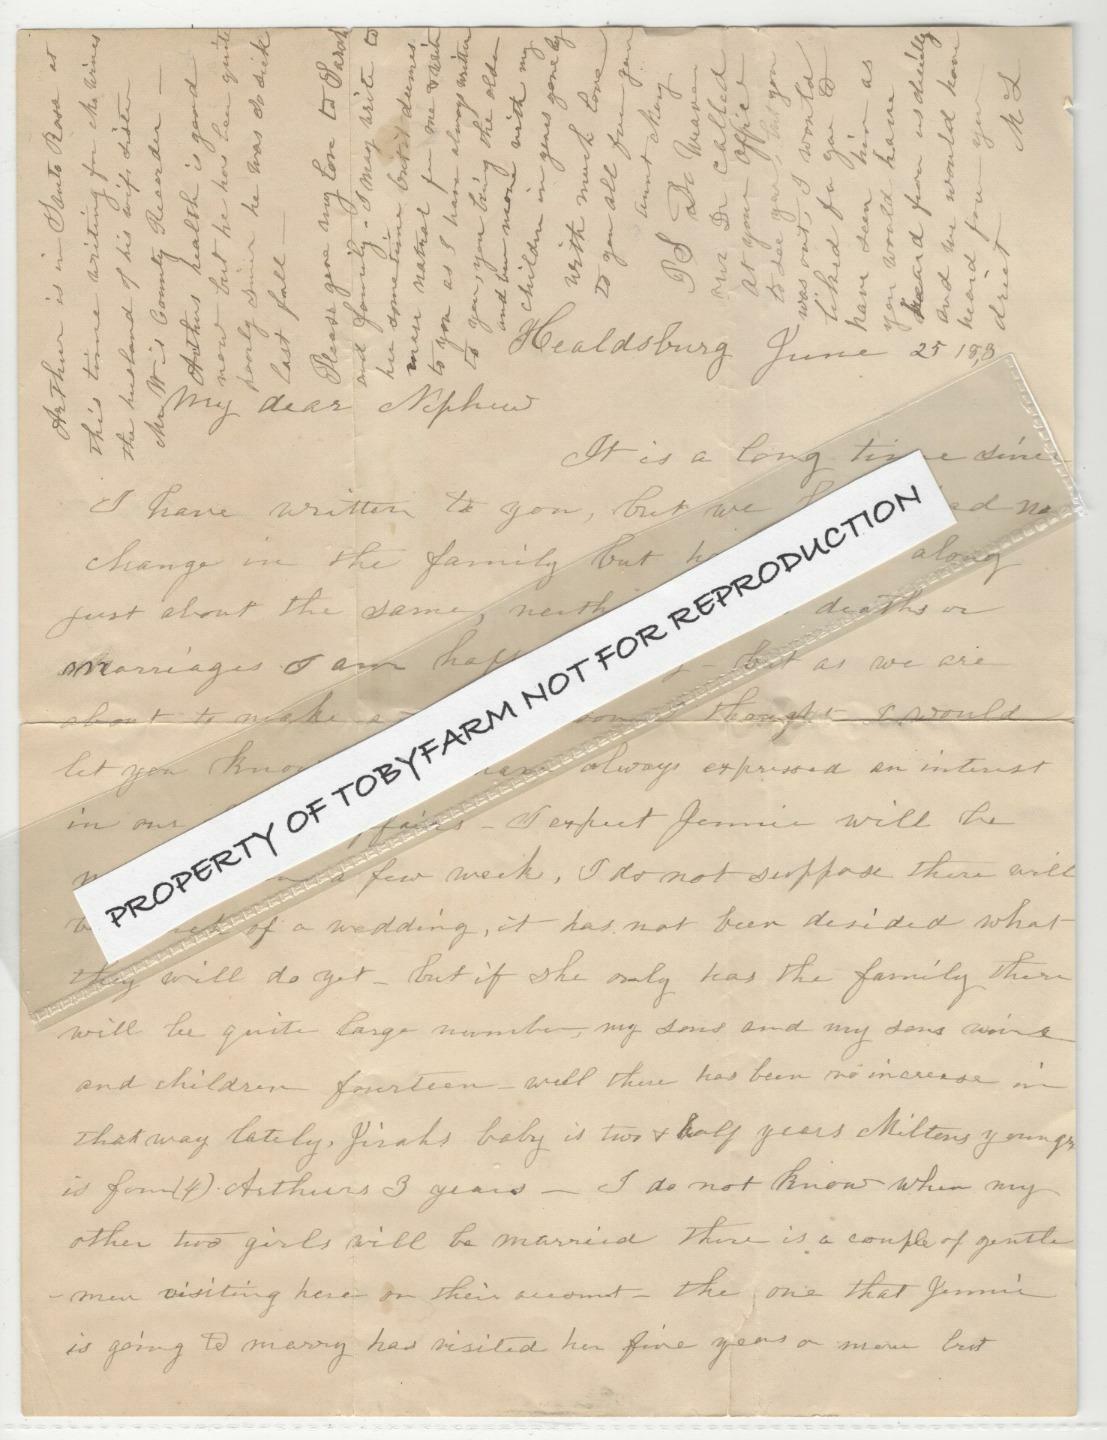 Healdsburg June 25 18
My dear Nephew
It is a long time since
I have written to you, but we had no
change in the family but along
just about the same, deaths or
marriages I am but as we are
about to make a thought I would
let you know always expressed an interest
in our affairs - I expect Jennie will be
a few week, I do not suppose there will
of a wedding, it has not been desided what
they will do yet - but if she only has the family there
will be quite large number, my sons and my sons
and children fourteen - well there has been no increase in
that way lately, Jirahs baby is two & half years Miltons
is four (4) Arthurs 3 years - I do not know when my
other two girls will be married there is a couple of gentle
- men visiting here on their account - the one that Jennie
is going to marry has visited her five years or more but
Arthur is in Santa Rosa at
this time writing for
the husband of his wifs sister
Mr W is County Recorder -
Arthurs health is good
now but he has been quite
poorly since he was so sick
last fall -
Please give my love to Sarah
and family - I may write to
her sometime but it seemes
more natral for me to write
to you as I have always written
to you, you being the oldest
and being more with my
children in years gone by
with much love
to you all from your
aunt Mary
P S Dr Weaver
our Dr called
at your office
to see you, but you
was out, I would
liked for you to
have seen him as
you would have
heard from us directly
and we would have
heard from you
direct M S
PROPERTY OF TOBYFARM NOT FOR REPRODUCTION